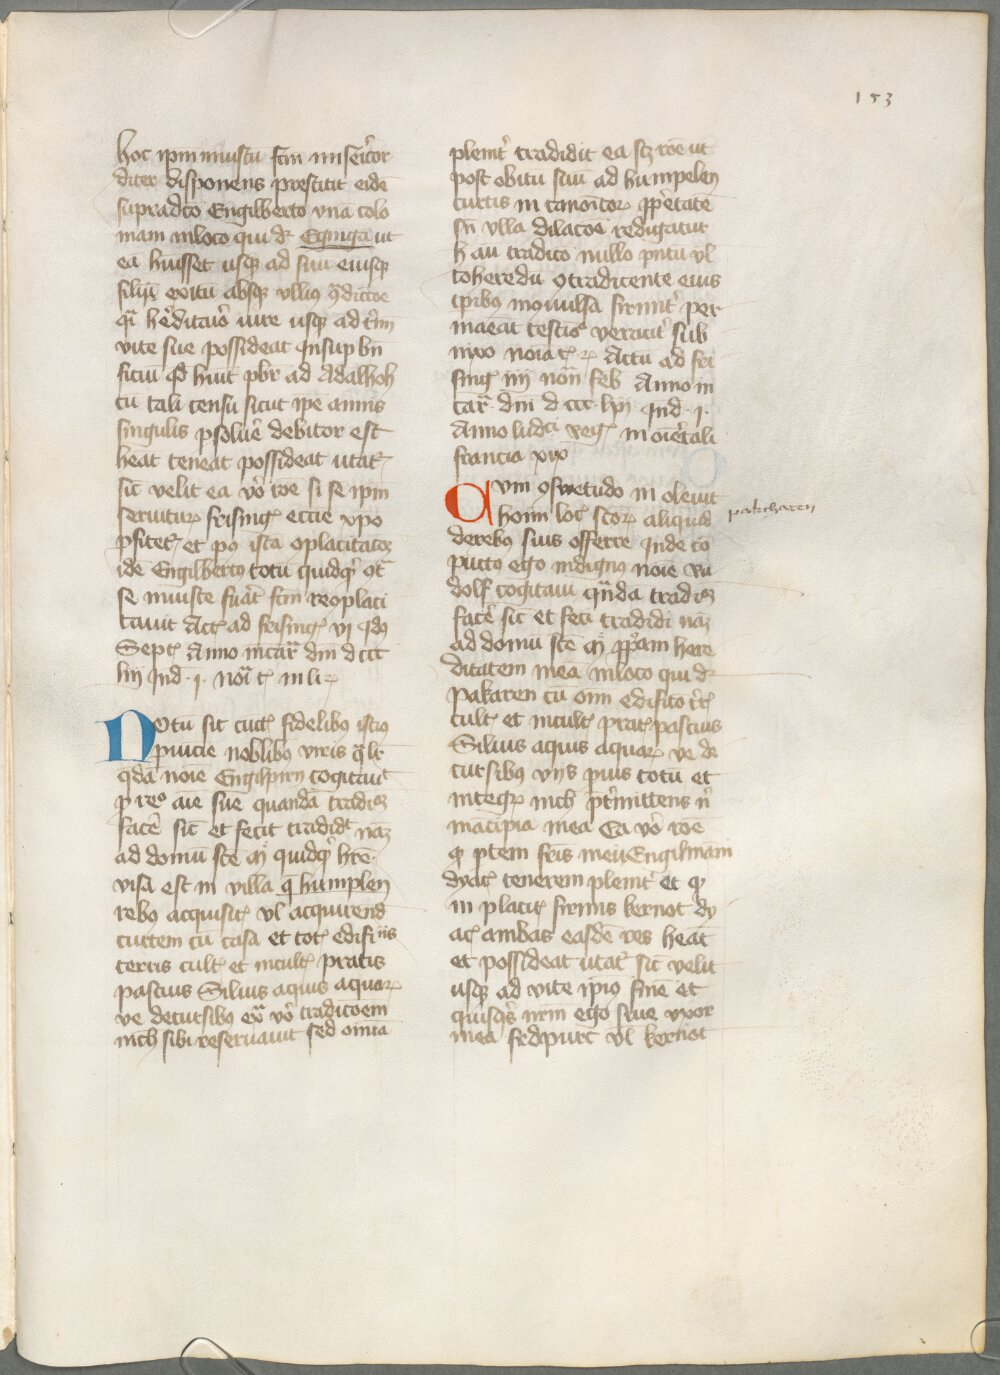 153
hoc ipm iniustu fcm misericor
diter disponens prestitit eide
supradco Engilberto vna colo
niam in loco qui dr Eginga ut
ea huisset usqz ad suu eiusqz
filii exitu absqz vllius ɔdictoe
qr heditaio iure usqz ad tmn
vite sue possideat Insup bn
ficiu qd huit pbr ad Adalhoh
cu tali censu sicut ipe annis
singulis psolue debitor est
heat teneat possideat utat
sic velit ea vo roe si se ipm
seruitur frising eccie xpo
psitet et po ista oplacitatoz
ide Engilbertq totu quidqd
se iniuste fuat fcm reoplaci
tauit Act ad frising vi Idus
Sept Anno incar dni d ccc
liij Ind · i · noia t in lir
Notu sit cuct fidelibq istiq
puicie noblibq viris q lr
qda noie Engilpirn cogitauit
p reo aie sue quanda tradic
face sic et fecit tradidt naz
ad domu sce m quidqd hre
visa est in villa q humplen
rebq acquisit vl acquirend
curtem cu casa et tot edificiis
terris cult et incult pratis
pascuis Siluis aquis aquar
ve decursibq ex vo tradicoem
nich sibi reseruauit sed omia
plemt tradidit ea scz roe ut
post obitu suu ad humpelen
curtis in canoicor pprietate
sn vlla dilacoe redigatur
h au tradico nullo pntu vl
coheredu ɔtradicente eius
tpibq inɔuulsa firmit per
maeat testiq veracit sub
nixo noia t r Actu ad fri
sing iiij non feb Anno in
car dni d ccc lxxj Ind · i ·
Anno ludci reg in oietali
francia xix
Cum ɔsuetudo inoleuit
hoim loc scor aliquid
de rebq suis offerre Inde co
puctq ego indignq noie vu
dolf cogitaui qnda tradic
face sic et feci tradidi naz
ad domu sce m ppam here
ditatem mea in loco qui dr
pakaren cu omi edificio tr
cult et incult prat pascuis
Siluis aquis aquar ve de
cursibq viis puis totu et
integr nich ptmittens n
macipia mea Ea vo roe
qz ptem fris mei Engilmam
dyac tenerem plemt et qz
in placit firmis kernot dy
ac ambas easde res heat
et possideat utat sic velit
usqz ad vite ipiq fine et
quisqs nrm ego siue vxor
mea fridpurc vl kernot
pakcharen